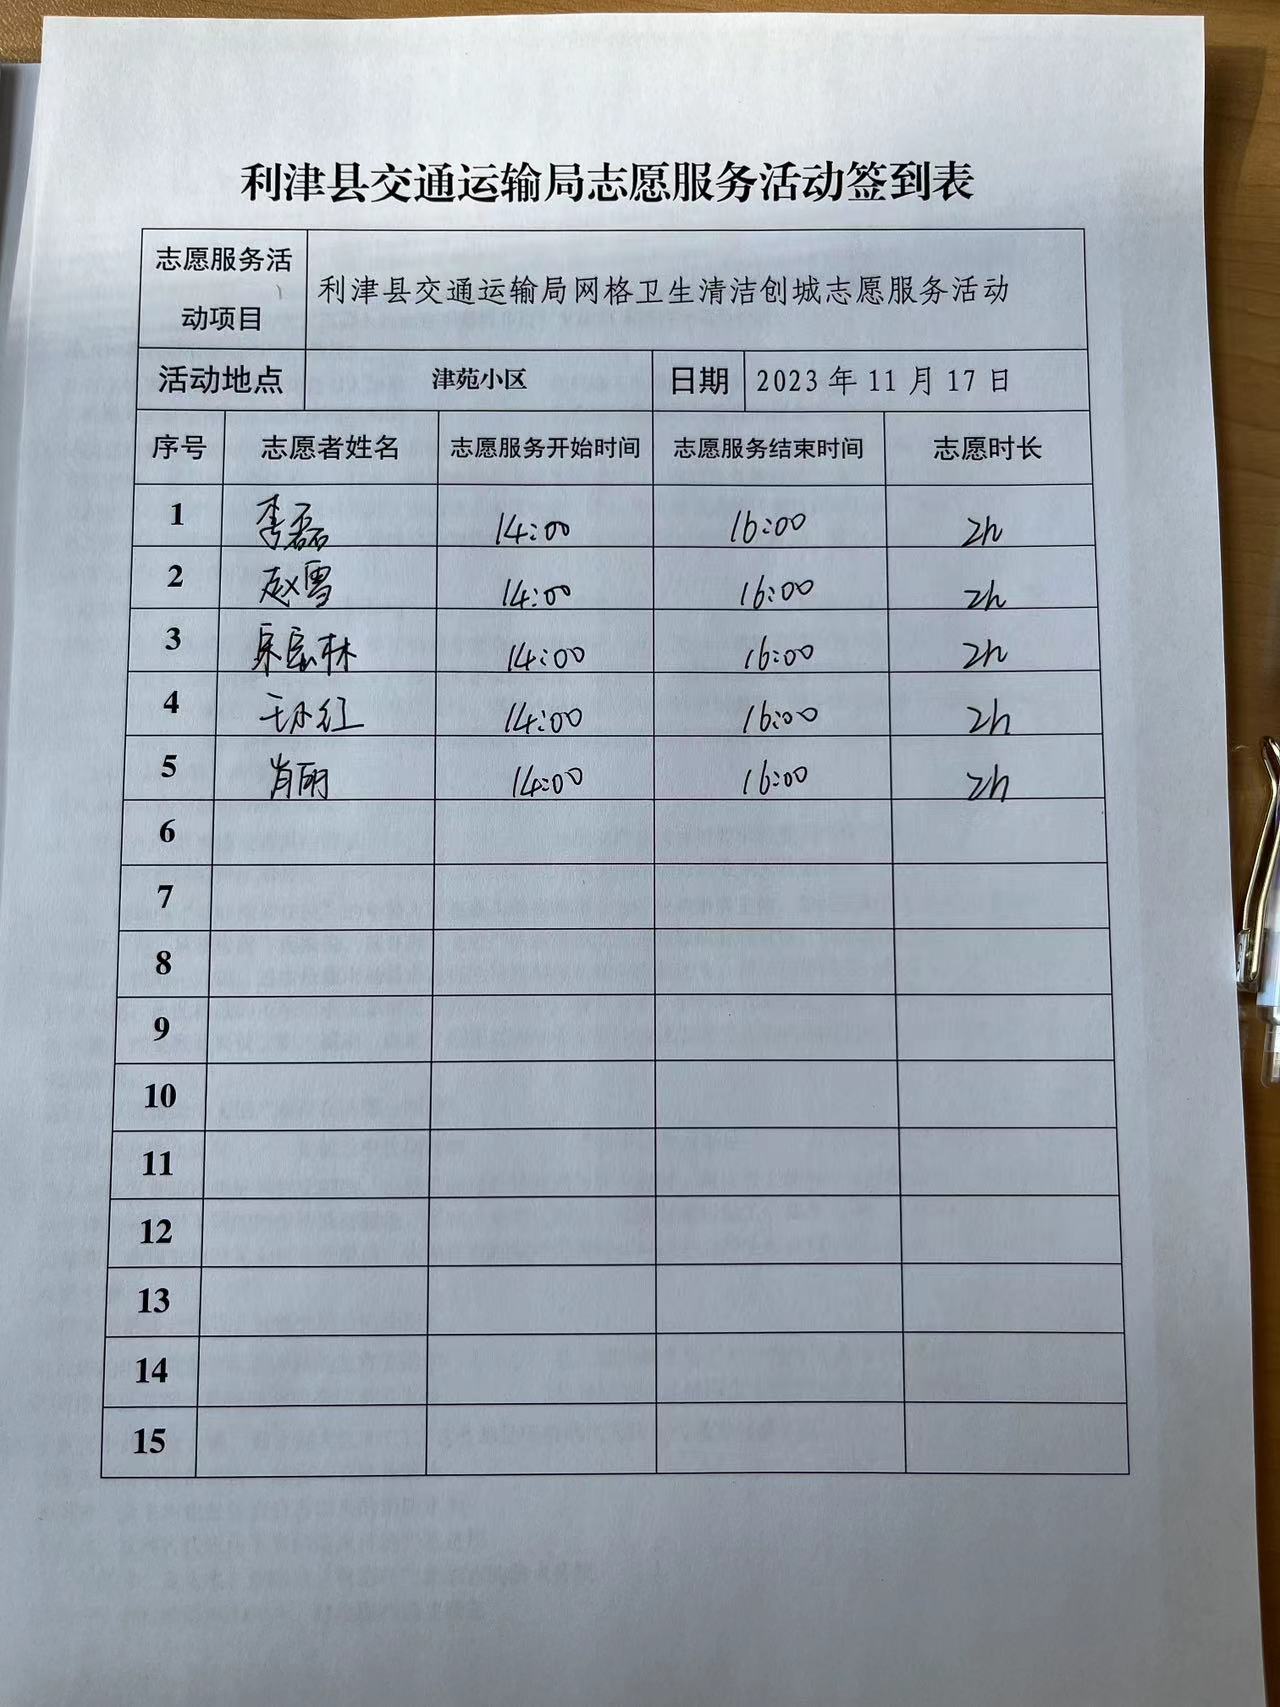 利津县交通运输局志愿服务活动签到表
志愿服务活动项目 利津县交通运输局网格卫生清洁创城志愿服务活动
活动地点 津苑小区 日期 2023 年 11 月 17 日
序号 志愿者姓名 志愿服务开始时间 志愿服务结束时间 志愿时长
1 李磊 14:00 16:00 2h
2 赵雪 14:00 16:00 2h
3 14:00 16:00 2h
4 14:00 16:00 2h
5 肖丽 14:00 16:00 2h
6
7
8
9
10
11
12
13
14
15